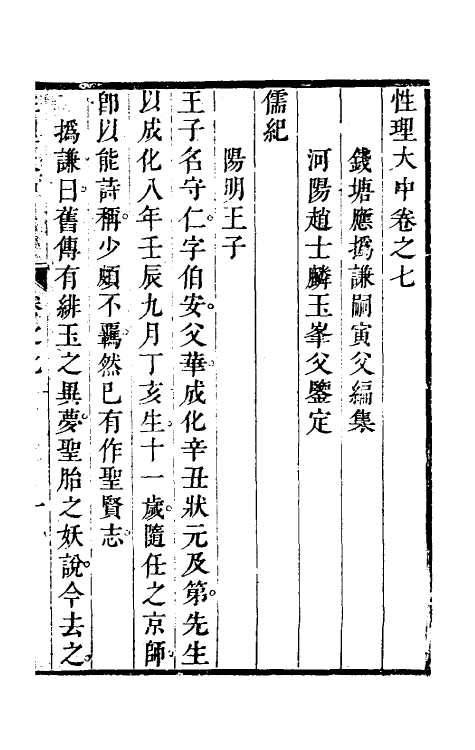 性理大中卷之七
錢塘應撝謙嗣寅父編集
河陽趙士麟玉峯父鑒定
儒紀
陽明王子
王子名守仁字伯安父華成化辛丑狀元及第先生
以成化八年壬辰九月丁亥生十一歲隨任之京師
卽以能詩稱少頗不羈然已有作聖賢志
撝謙曰舊傳有緋玉之異夢聖胎之妖說今去之